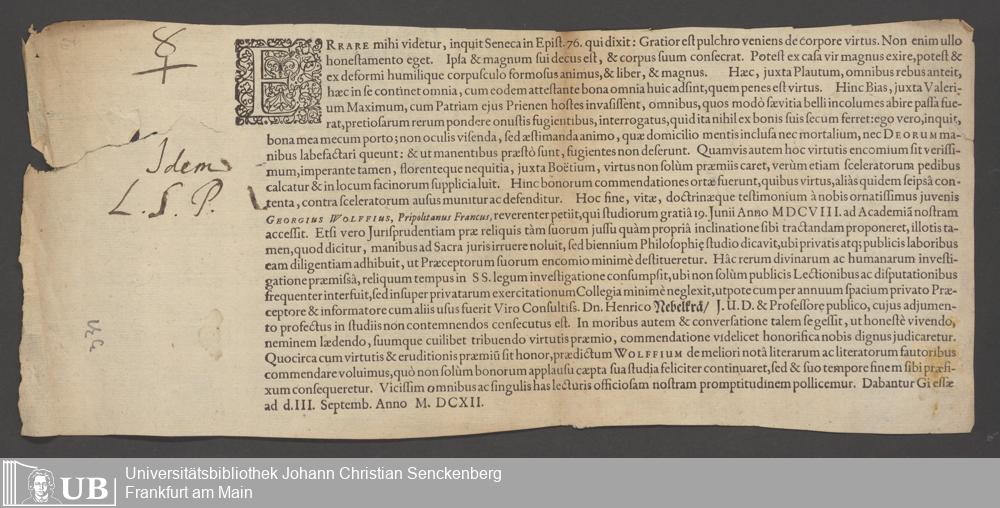 8
Idem
L. S. P.
ERRARE mihi videtur, inquit Seneca in Epist. 76. qui dixit: Gratior est pulchro veniens de corpore virtus. Non enim ullo
honestamento eget. Ipsa & magnum sui decus est, & corpus suum consecrat. Potest ex casa vir magnus exire, potest &
ex deformi humilique corpusculo formosus animus, & liber, & magnus. Hæc, juxta Plautum, omnibus rebus anteit,
hæc in se continet omnia, cum eodem attestante bona omnia huic adsint, quem penes est virtus. Hinc Bias, juxta Valeri-
um Maximum, cum Patriam ejus Prienen hostes invasissent, omnibus, quos modò sævitia belli incolumes abire passa fue-
rat, pretiosarum rerum pondere onustis fugientibus, interrogatus, quid ita nihil ex bonis suis secum ferret: ego vero, inquit,
bona mea mecum porto; non oculis visenda, sed æstimanda animo, quæ domicilio mentis inclusa nec mortalium, nec DEORUM ma-
nibus labefactari queunt: & ut manentibus præstò sunt, fugientes non deserunt. Quamvis autem hoc virtutis encomium sit verissi-
mum, imperante tamen, florenteque nequitia, juxta Boëtium, virtus non solùm præmiis caret, verùm etiam sceleratorum pedibus
calcatur & in locum facinorum supplicia luit. Hinc bonorum commendationes ortæ fuerunt, quibus virtus, aliàs quidem seipsâ con-
tenta, contra sceleratorum ausus munitur ac defenditur. Hoc fine, vitæ, doctrinæque testimonium à nobis ornatissimus juvenis
GEORGIUS WOLFFIUS, Pripolitanus Francus, reverenter petiit, qui studiorum gratiâ 19. Junii Anno MDCVIII. ad Academiã nostram
accessit. Etsi vero Jurisprudentiam præ reliquis tàm suorum jussu quàm propriâ inclinatione sibi tractandam proponeret, illotis ta-
men, quod dicitur, manibus ad Sacra juris irruere noluit, sed biennium Philosophiȩ studio dicavit, ubi privatis atq; publicis laboribus
eam diligentiam adhibuit, ut Præceptorum suorum encomio minimè destitueretur. Hâc rerum divinarum ac humanarum investi-
gatione præmissâ, reliquum tempus in SS. legum investigatione consumpsit, ubi non solùm publicis Lectionibus ac disputationibus
frequenter interfuit, sed insuper privatarum exercitationum Collegia minimè neglexit, utpote cum per annuum spacium privato Præ-
ceptore & informatore cum aliis usus fuerit Viro Consultiss. Dn. Henrico Nebelkrä/ J. U. D. & Professore publico, cujus adjumen-
to profectus in studiis non contemnendos consecutus est. In moribus autem & conversatione talem se gessit, ut honestè vivendo,
neminem lædendo, suumque cuilibet tribuendo virtutis præmio, commendatione videlicet honorifica nobis dignus judicaretur.
Quocirca cum virtutis & eruditionis præmiũ sit honor, prædictum WOLFFIUM de meliori notâ literarum ac literatorum fautoribus
commendare voluimus, quò non solùm bonorum applausu cæpta sua studia feliciter continuaret, sed & suo tempore finem sibi præfi-
xum consequeretur. Vicissim omnibus ac singulis has lecturis officiosam nostram promptitudinem pollicemur. Dabantur Giessæ
ad d. III. Septemb. Anno M. DCXII.
UB
Universitätsbibliothek Johann Christian Senckenberg
Frankfurt am Main